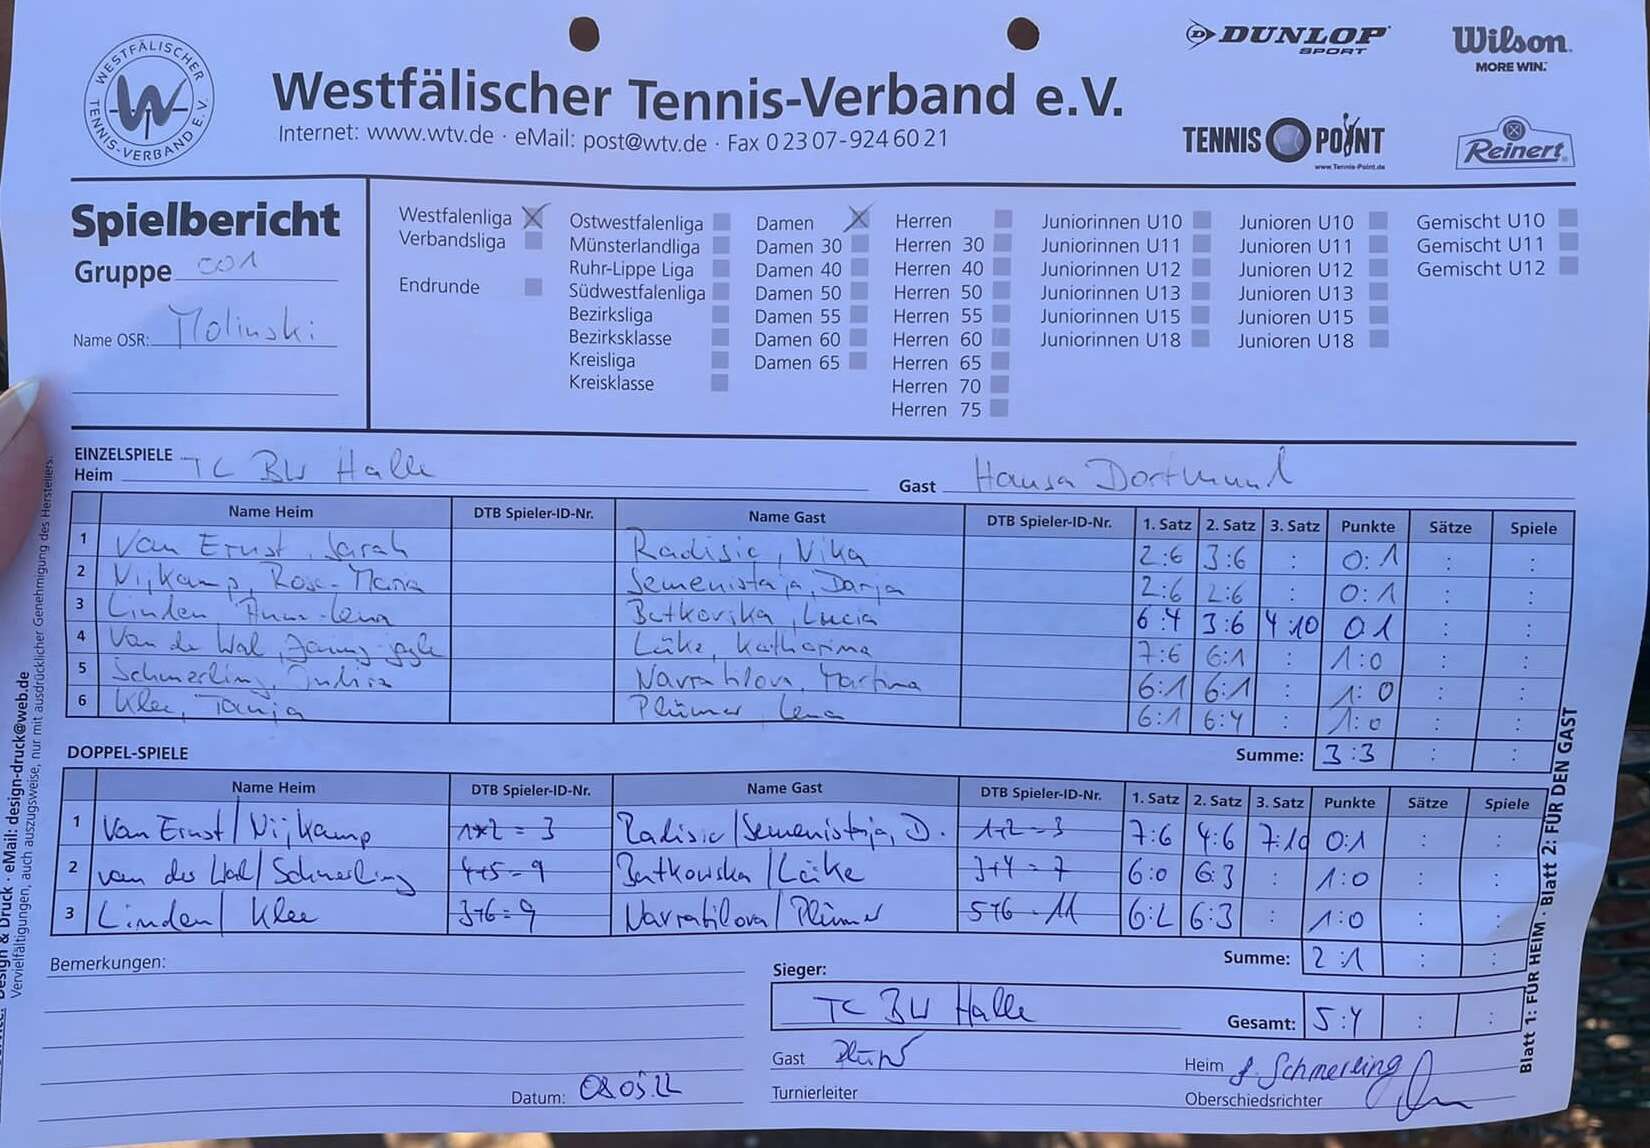 WESTFÄLISCHER TENNIS-VERBAND E.V.
Westfälischer Tennis-Verband e.V.
Internet: www.wtv.de · eMail: post@wtv.de · Fax 0 23 07-924 60 21
DUNLOP SPORT
Wilson. MORE WIN.
TENNIS POINT
www.Tennis-Point.de
Reinert
Spielbericht
Gruppe 001
Name OSR: Molinski
Westfalenliga X
Verbandsliga
Endrunde
Ostwestfalenliga
Münsterlandliga
Ruhr-Lippe Liga
Südwestfalenliga
Bezirksliga
Bezirksklasse
Kreisliga
Kreisklasse
Damen X
Damen 30
Damen 40
Damen 50
Damen 55
Damen 60
Damen 65
Herren
Herren 30
Herren 40
Herren 50
Herren 55
Herren 60
Herren 65
Herren 70
Herren 75
Juniorinnen U10
Juniorinnen U11
Juniorinnen U12
Juniorinnen U13
Juniorinnen U15
Juniorinnen U18
Junioren U10
Junioren U11
Junioren U12
Junioren U13
Junioren U15
Junioren U18
Gemischt U10
Gemischt U11
Gemischt U12
EINZELSPIELE
Heim TC BW Halle Gast Hansa Dortmund
Name Heim DTB Spieler-ID-Nr. Name Gast DTB Spieler-ID-Nr. 1. Satz 2. Satz 3. Satz Punkte Sätze Spiele
1 Van Ernst, Sarah Radisic, Nika 2:6 3:6 : 0:1 : :
2 Nijkamp, Rose-Marie Semenistaja, Darja 2:6 2:6 : 0:1 : :
3 Linden, Anna-Lena Lucia 6:4 3:6 4:10 0:1 : :
4 Van de Wal, Lüke, Katharina 7:6 6:1 : 1:0 : :
5 Schmerling, Navratilova, Martina 6:1 6:1 : 1:0 : :
6 Klee, Tanja Plümer, Lena 6:1 6:4 : 1:0 : :
Summe: 3:3 : :
DOPPEL-SPIELE
Name Heim DTB Spieler-ID-Nr. Name Gast DTB Spieler-ID-Nr. 1. Satz 2. Satz 3. Satz Punkte Sätze Spiele
1 Van Ernst/Nijkamp 1+2 = 3 Radisic/Semenistaja, D. 1+2 = 3 7:6 4:6 7:10 0:1 : :
2 van der Wal/Schmerling 4+5 = 9 Batkovska/Lüke 3+4 = 7 6:0 6:3 : 1:0 : :
3 Linden/Klee 3+6 = 9 Navratilova/Plümer 5+6 = 11 6:2 6:3 : 1:0 : :
Summe: 2:1 : :
Bemerkungen:
Sieger:
TC BW Halle Gesamt: 5:4 : :
Gast
Heim J. Schmerling
Datum: 08.05.22
Turnierleiter
Oberschiedsrichter
Design & Druck · eMail: design-druck@web.de
Vervielfältigungen, auch auszugsweise, nur mit ausdrücklicher Genehmigung des Herstellers.
Blatt 1: FÜR HEIM · Blatt 2: FÜR DEN GAST